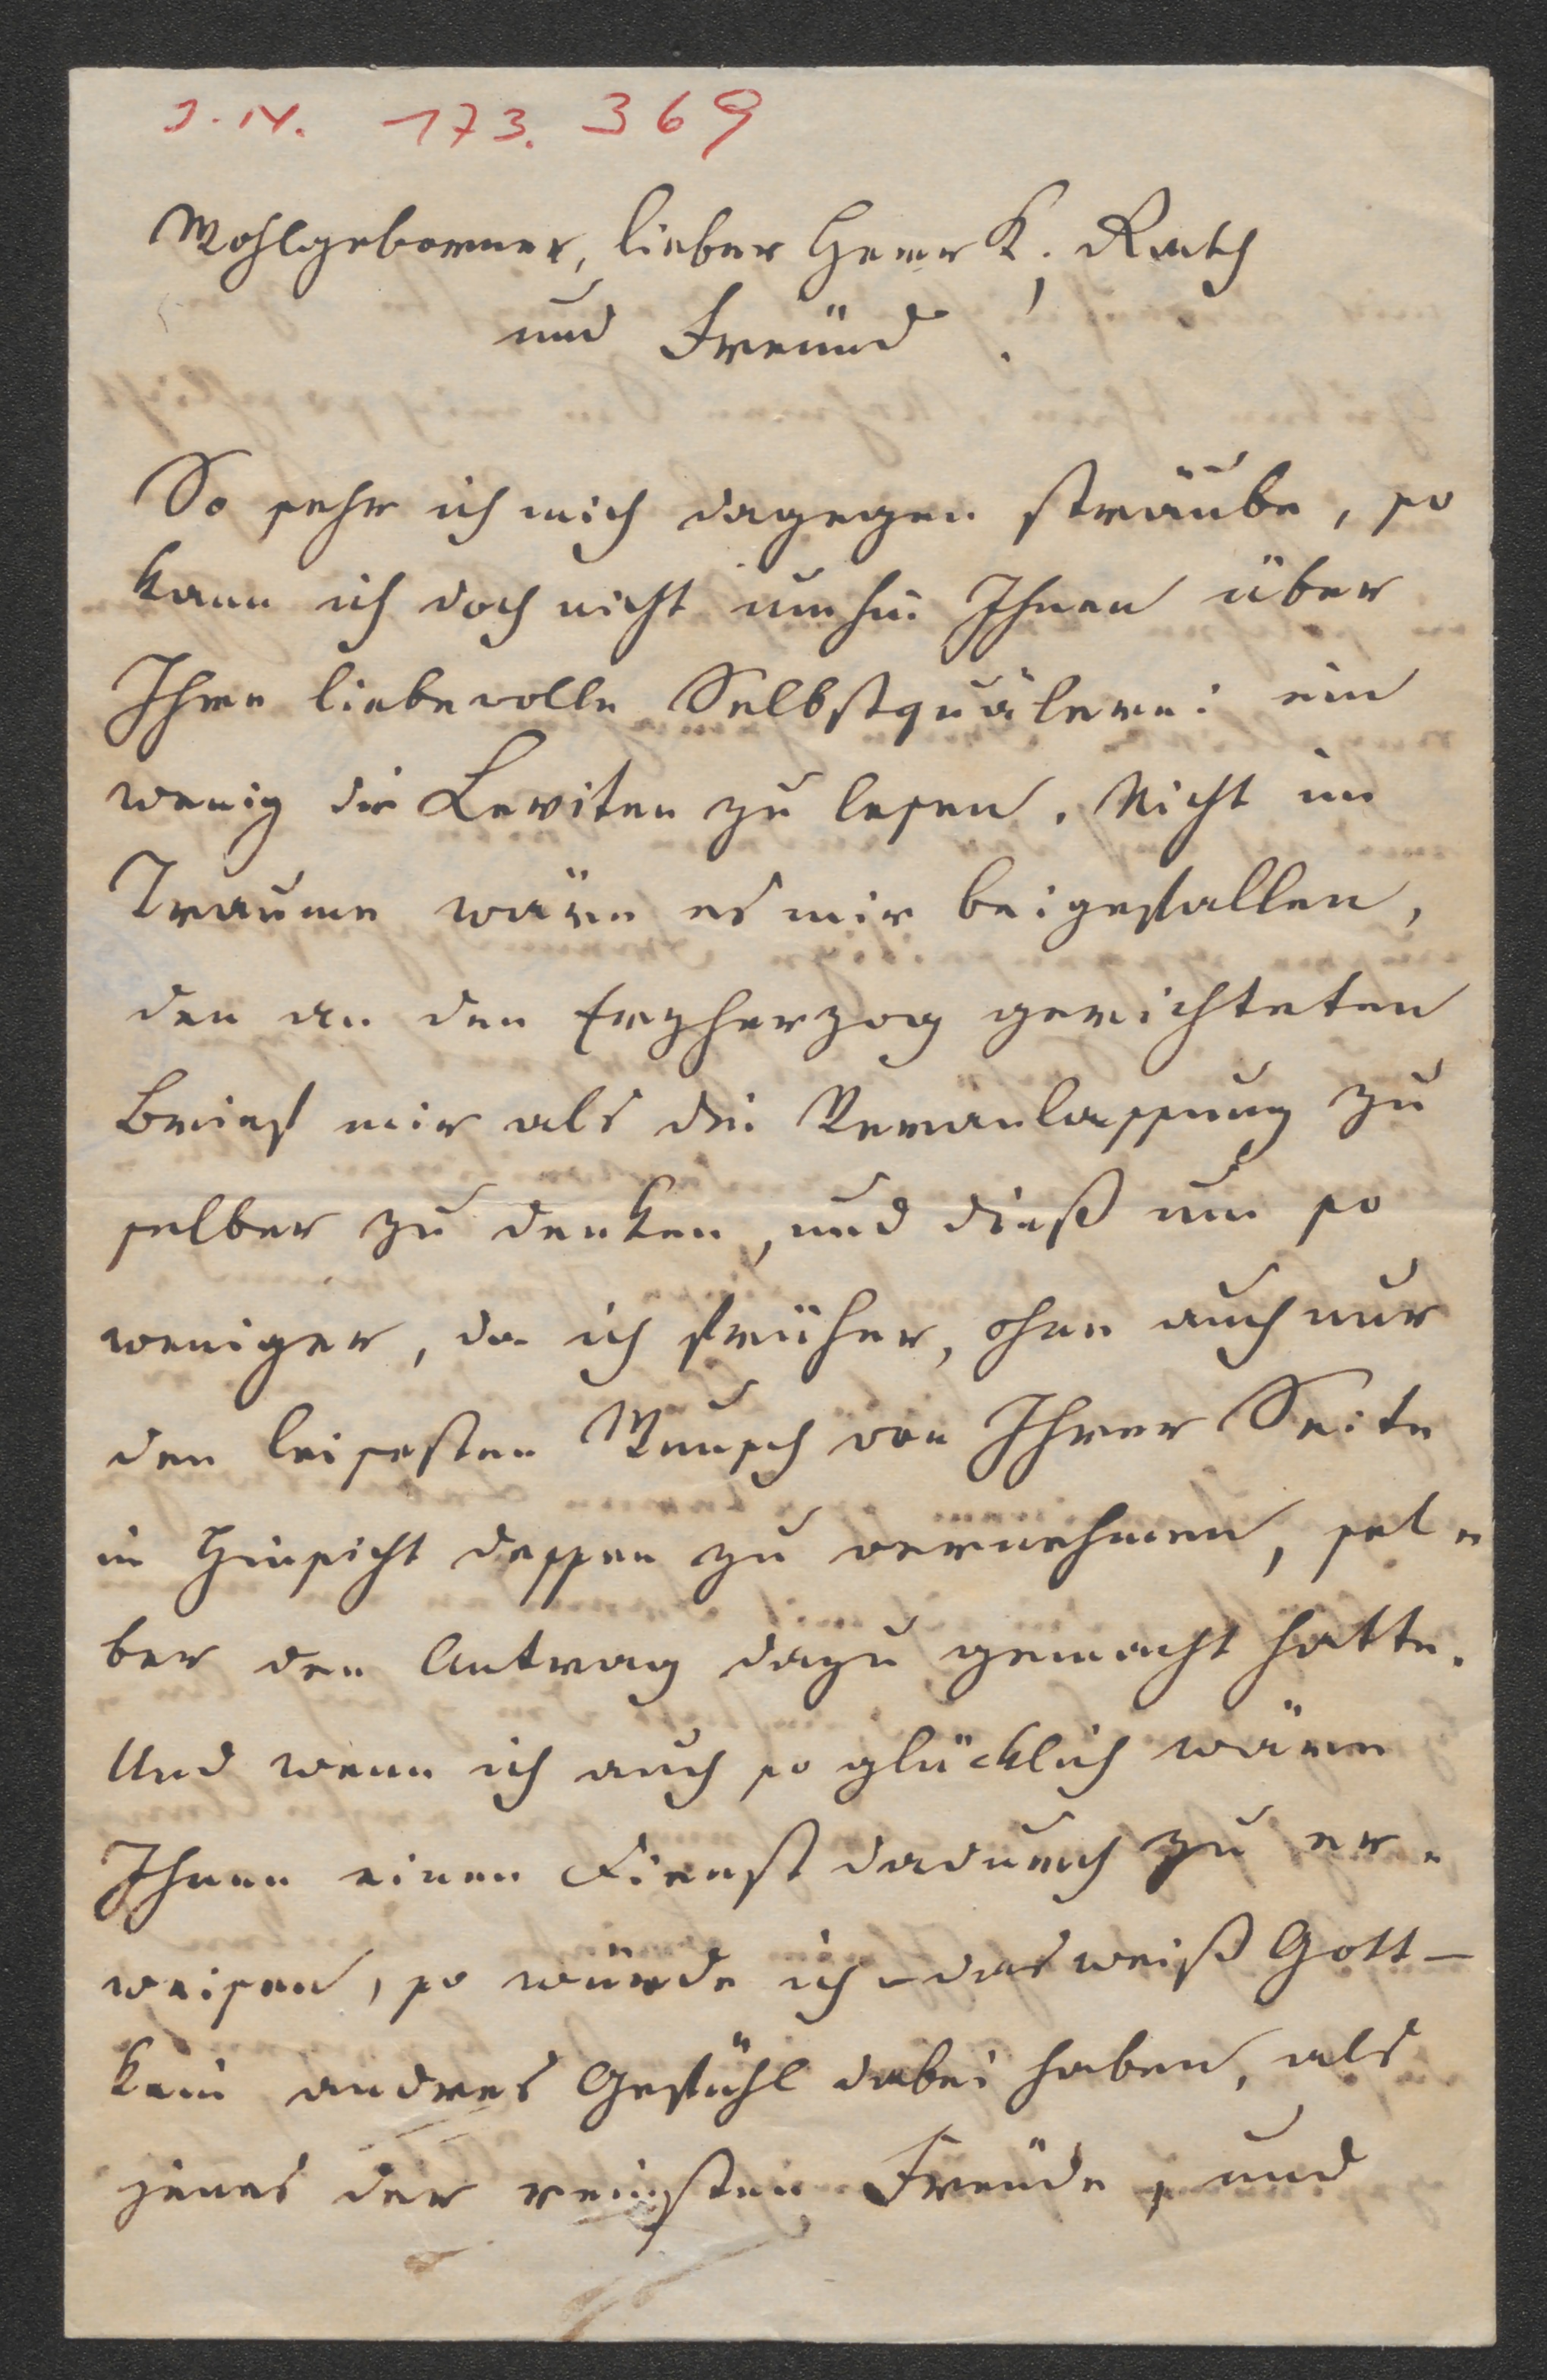 J. N. 173.369
Wohlgeborner, lieber Herr K. Rath
und Freund!
So sehr ich mich dagegen sträube, so
kann ich doch nicht umhin Ihnen über
Ihre liebevolle Selbstquälerei ein
wenig die Leviten zu lesen. Nicht im
Traume wäre es mir beigefallen,
den an den Erzherzog gerichteten
Brief mir als die Veranlassung zu
selber zu denken, und dieß um so
weniger, da ich früher, ohne auch nur
den leisesten Wunsch von Ihrer Seite
in Hinsicht dessen zu vernehmen, sel-
ber den Antrag dazu gemacht hatte.
Und wenn ich auch so glücklich wäre
Ihnen einen Dienst dadurch zu er-
weisen, so würde ich – das weiß Gott –
kein andres Gefühl dabei haben, als
jenes der reinsten Freude, und